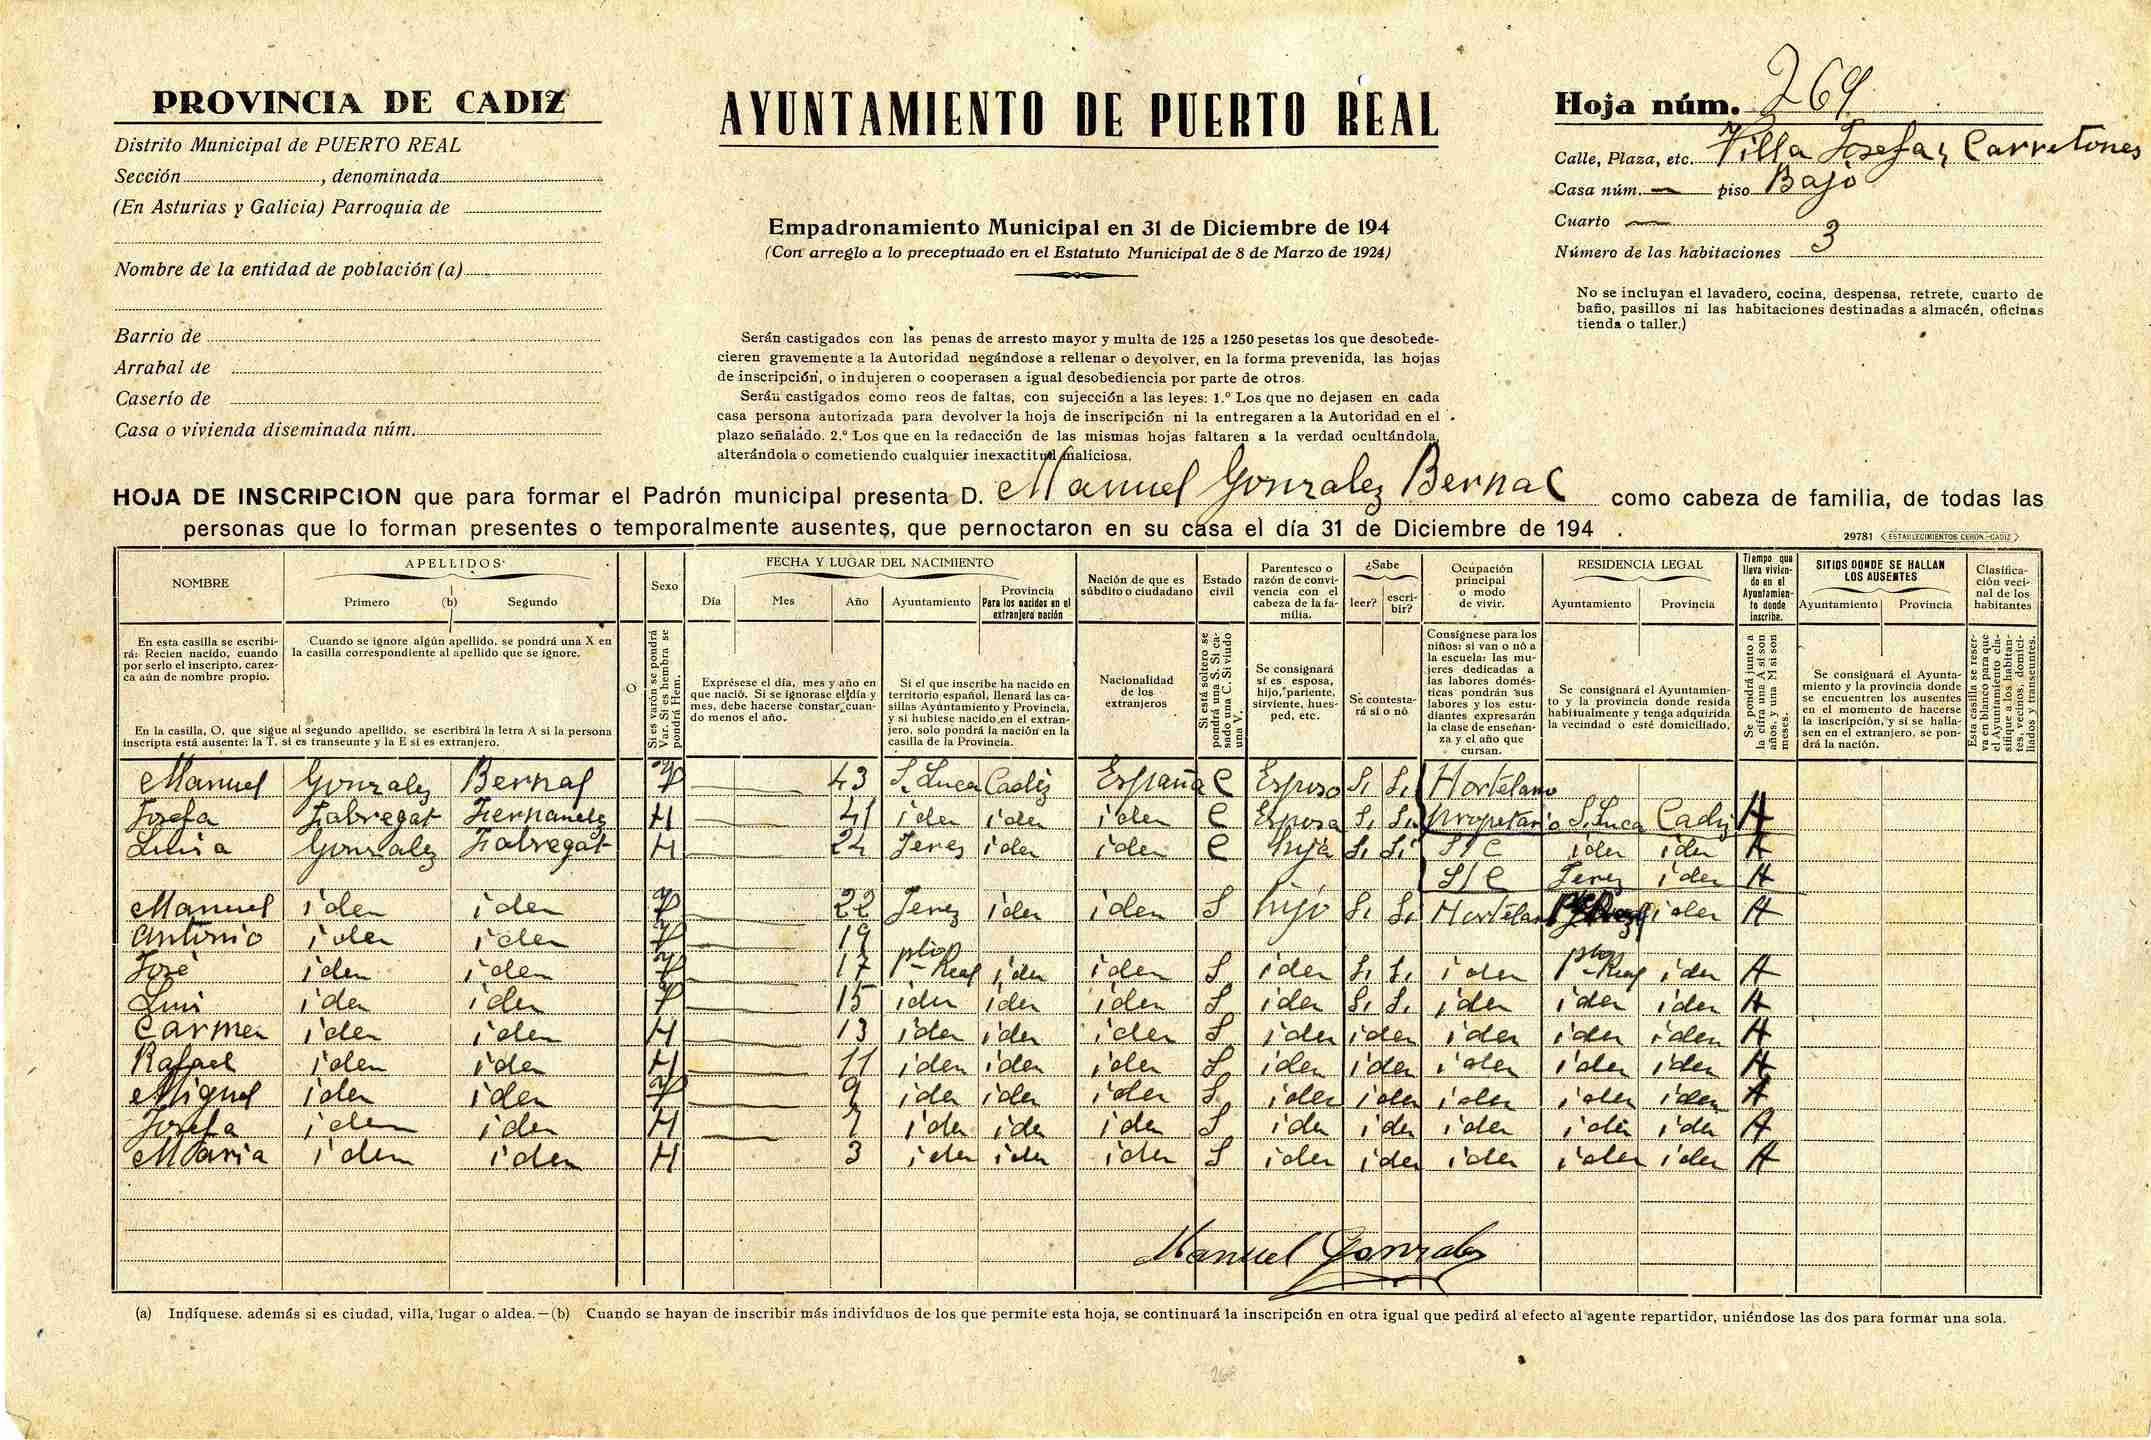 PROVINCIA DE CADIZ
Distrito Municipal de PUERTO REAL
Sección , denominada
(En Asturias y Galicia) Parroquia de
Nombre de la entidad de población (a)
Barrio de
Arrabal de
Caserío de
Casa o vivienda diseminada núm.
AYUNTAMIENTO DE PUERTO REAL
Empadronamiento Municipal en 31 de Diciembre de 194
(Con arreglo a lo preceptuado en el Estatuto Municipal de 8 de Marzo de 1924)
Serán castigados con las penas de arresto mayor y multa de 125 a 1250 pesetas los que desobede-
cieren gravemente a la Autoridad negándose a rellenar o devolver, en la forma prevenida, las hojas
de inscripción, o indujeren o cooperasen a igual desobediencia por parte de otros.
Serán castigados como reos de faltas, con sujección a las leyes: 1.º Los que no dejasen en cada
casa persona autorizada para devolver la hoja de inscripción ni la entregaren a la Autoridad en el
plazo señalado. 2.º Los que en la redacción de las mismas hojas faltaren a la verdad ocultándola,
alterándola o cometiendo cualquier inexactitud maliciosa.
Hoja núm. 269
Calle, Plaza, etc. Villa Josefa, Carretones
Casa núm. — piso Bajo
Cuarto —
Número de las habitaciones 3
No se incluyan el lavadero, cocina, despensa, retrete, cuarto de
baño, pasillos ni las habitaciones destinadas a almacén, oficinas
tienda o taller.)
HOJA DE INSCRIPCION que para formar el Padrón municipal presenta D. Manuel Gonzalez Bernal como cabeza de familia, de todas las
personas que lo forman presentes o temporalmente ausentes, que pernoctaron en su casa el día 31 de Diciembre de 194 .
29781 ESTABLECIMIENTOS CERÓN.-CADIZ
NOMBRE
En esta casilla se escribi-
rá: Recien nacido, cuando
por serlo el inscripto, carez-
ca aún de nombre propio.
APELLIDOS
Primero (b) Segundo
Cuando se ignore algún apellido, se pondrá una X en
la casilla correspondiente al apellido que se ignore.
En la casilla, O, que sigue al segundo apellido, se escribirá la letra A si la persona
inscripta está ausente: la T, si es transeunte y la E si es extranjero.
O
Sexo
Si es varón se pondrá
Var. Si es hembra se
pondrá Hem.
FECHA Y LUGAR DEL NACIMIENTO
Día Mes Año Ayuntamiento
Provincia
Para los nacidos en el
extranjero nación
Exprésese el día, mes y año en
que nació. Si se ignorase el día y
mes, debe hacerse constar, cuan-
do menos el año.
Si el que inscribe ha nacido en
territorio español, llenará las ca-
sillas Ayuntamiento y Provincia,
y si hubiese nacido en el extran-
jero, solo pondrá la nación en la
casilla de la Provincia.
Nación de que es
súbdito o ciudadano
Nacionalidad
de los
extranjeros
Estado
civil
Si está soltero se
pondrá una S. Si ca-
sado una C. Si viudo
una V.
Parentesco o
razón de convi-
vencia con el
cabeza de la fa-
milia.
Se consignará
si es esposa,
hijo, pariente,
sirviente, hues-
ped, etc.
¿Sabe
leer? escri-
bir?
Se contesta-
rá si o nó
Ocupación
principal
o modo
de vivir.
Consígnese para los
niños: si van o nó a
la escuela: las mu-
jeres dedicadas a
las labores domés-
ticas pondrán sus
labores y los estu-
diantes expresarán
la clase de enseñan-
za y el año que
cursan.
RESIDENCIA LEGAL
Ayuntamiento Provincia
Se consignará el Ayuntamien-
to y la provincia donde resida
habitualmente y tenga adquirida
la vecindad o esté domiciliado.
Tiempo que
lleva vivien-
do en el
Ayuntamien-
to donde
inscribe.
Se pondrá junto a
la cifra una A si son
años, y una M si son
meses.
SITIOS DONDE SE HALLAN
LOS AUSENTES
Ayuntamiento Provincia
Se consignará el Ayunta-
miento y la provincia donde
se encuentren los ausentes
en el momento de hacerse
la inscripción, y si se halla-
sen en el extranjero, se pon-
drá la nación.
Clasifica-
ción veci-
nal de los
habitantes
Esta casilla se reser-
va en blanco para que
el Ayuntamiento cla-
sifique a los habitan-
tes, vecinos, domici-
liados y transeuntes.
Manuel Gonzalez Bernal V 43 S. Luca Cadiz España C Esposo Si Si Hortelano
Josefa Fabregat Fernandez H 41 iden iden iden C Esposa Si Si propetario S. Luca Cadiz A
Luisa Gonzalez Fabregat H 24 Jerez iden iden C hija Si Si S/C iden iden A
S/C Jerez iden A
Manuel iden iden V 22 Jerez iden iden S hijo Si Si Hortelano iden A
Antonio iden iden V 19
José iden iden V 17 pto Real iden iden S iden Si Si iden pto Real iden A
Luis iden iden V 15 iden iden iden S iden Si Si iden iden iden A
Carmen iden iden H 13 iden iden iden S iden iden iden iden iden A
Rafael iden iden H 11 iden iden iden S iden iden iden iden iden A
Miguel iden iden V 9 iden iden iden S iden iden iden iden iden A
Josefa iden iden H 7 iden iden iden S iden iden iden iden iden A
Maria iden iden H 3 iden iden iden S iden iden iden iden iden A
Manuel Gonzalez
(a) Indíquese, además si es ciudad, villa, lugar o aldea.—(b) Cuando se hayan de inscribir más individuos de los que permite esta hoja, se continuará la inscripción en otra igual que pedirá al efecto al agente repartidor, uniéndose las dos para formar una sola.
268